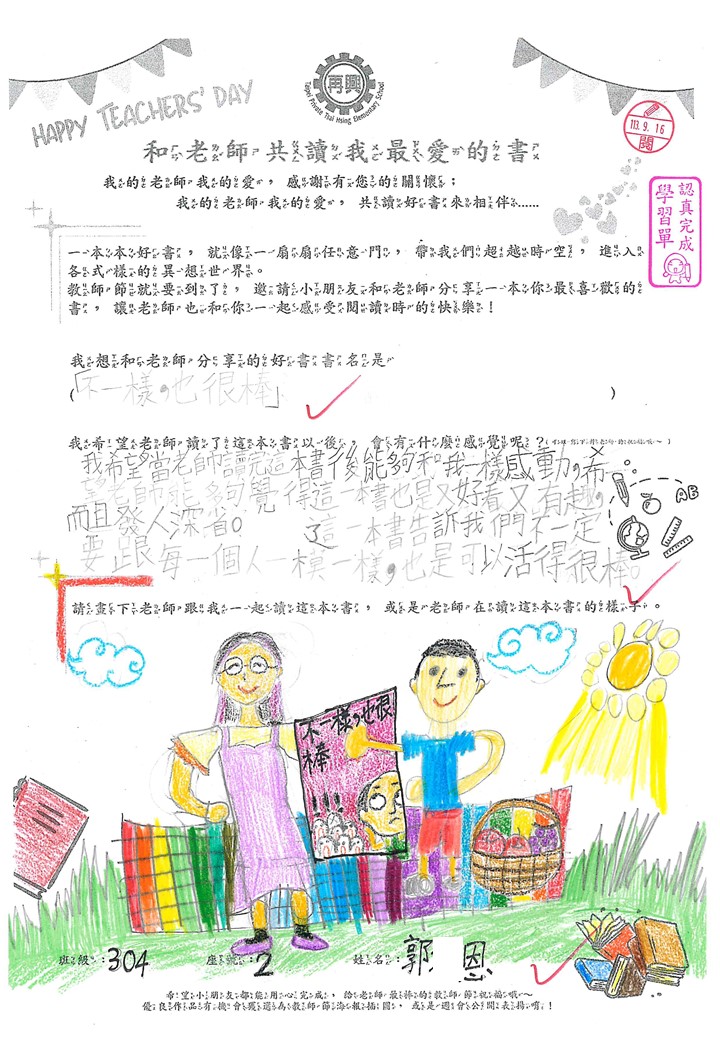 再興
Taipei Private Tsai Hsing Elementary School
HAPPY TEACHERS' DAY
113. 9. 16
閱
和老師共讀我最愛的書
認真完成
學習單
我的老師我的愛，感謝有您的關懷；
我的老師我的愛，共讀好書來相伴……
一本本好書，就像一扇扇任意門，帶我們超越時空，進入
各式樣的異想世界。
教師節就要到了，邀請小朋友和老師分享一本你最喜歡的
書，讓老師也和你一起感受閱讀時的快樂！
我想和老師分享的好書書名是
(「不一樣，也很棒」)
我希望老師讀了這本書以後，會有什麼感覺呢？
我希望當老師讀完這本書後能夠和我一樣感動，希
望老師能夠覺得這一本書也是又好看又有趣，
而且發人深省。這一本書告訴我們不一定
要跟每一個人一模一樣，也是可以活得很棒。
AB
請畫下老師跟我一起讀這本書，或是老師在讀這本書的樣子。
不一樣，也很
棒
班級：304 座號：2 姓名：郭 恩
希望小朋友都能用心完成，給老師最棒的教師節祝福哦～
優良作品有機會獲選為教師節海報插圖，或是週會公開表揚唷！